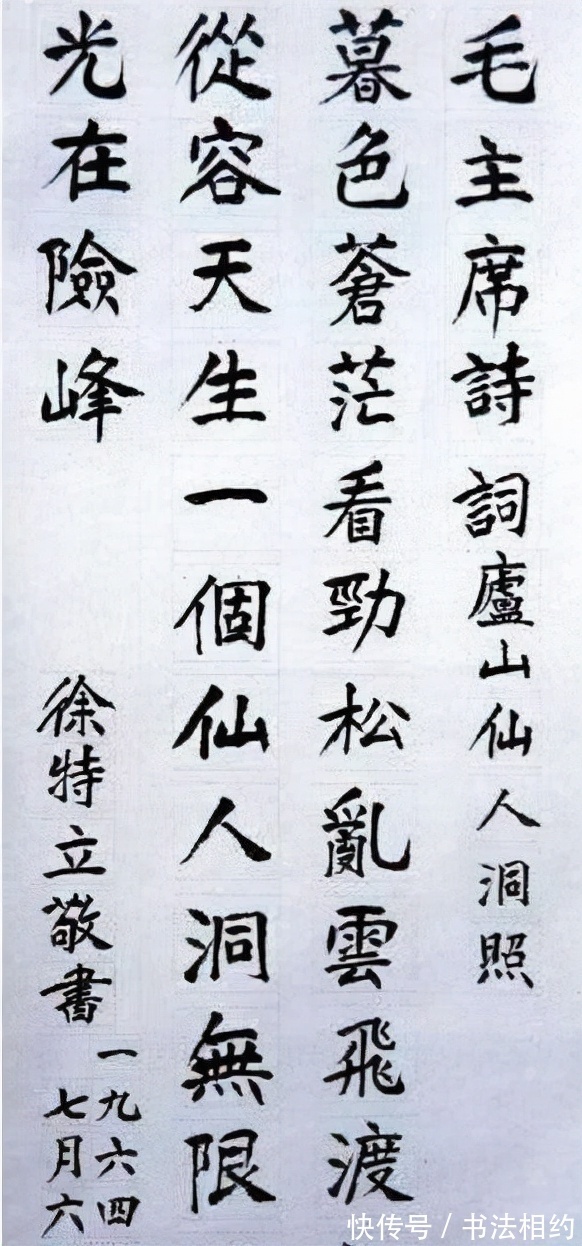 毛主席詩詞廬山仙人洞照
暮色蒼茫看勁松亂雲飛渡
從容天生一個仙人洞無限
光在險峰
徐特立敬書
一九六四
七月六
快传号 / 书法相约